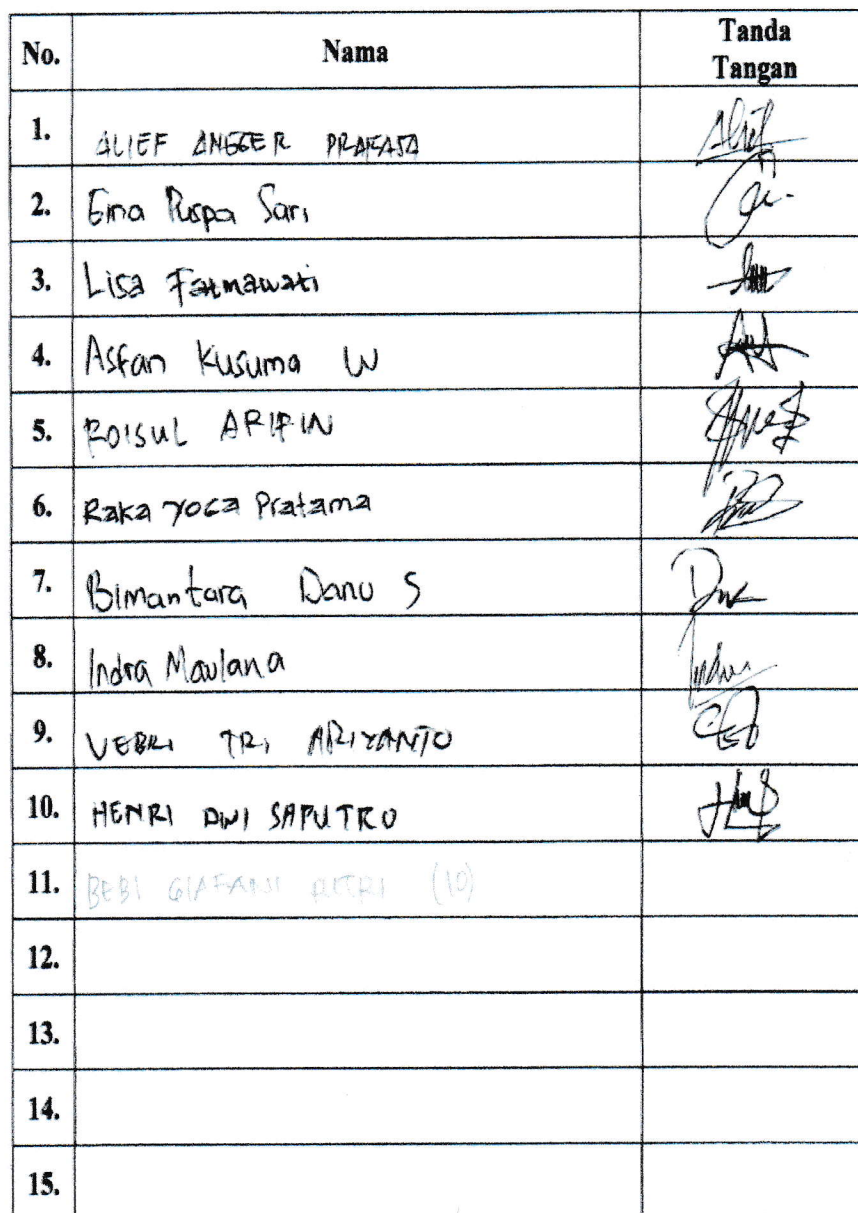 No. Nama Tanda Tangan
1. ALIEF ANGGER PRAKASA
2. Erna Puspa Sari
3. Lisa Fatmawati
4. Asfan Kusuma W
5. ROISUL ARIFIN
6. Raka Yoga Pratama
7. Bimantara Danu S
8. Indra Maulana
9. VEBRI TRI ARIYANTO
10. HENRI DWI SAPUTRO
11. BEBI (10)
12.
13.
14.
15.